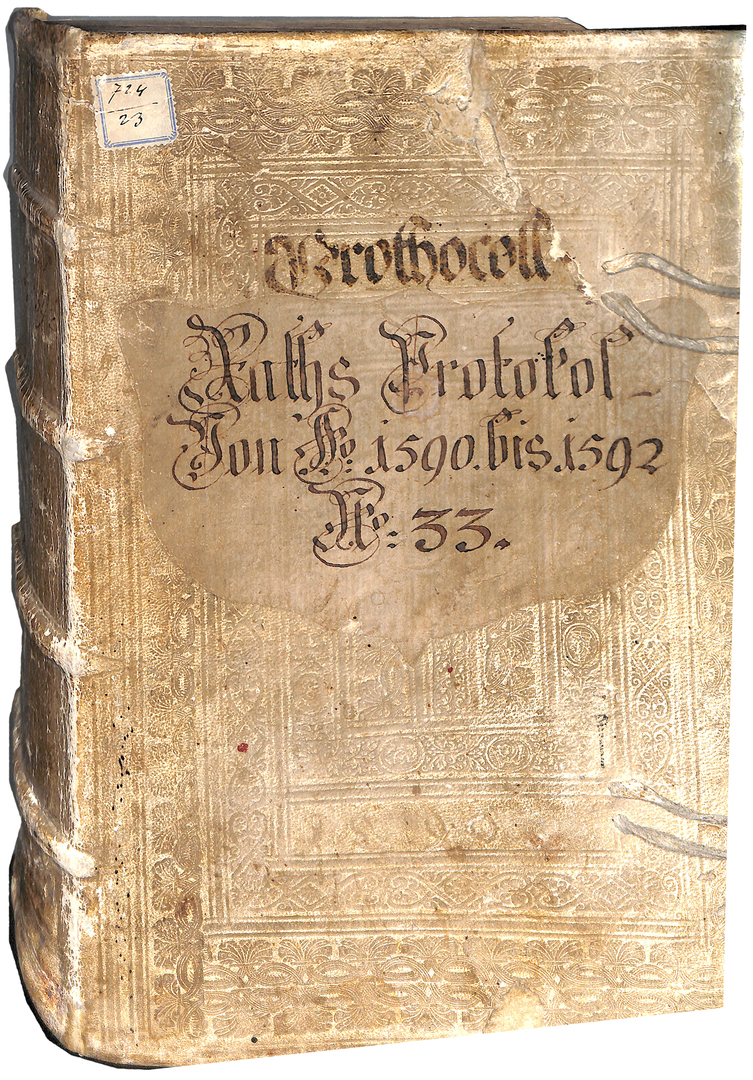 724
23
Prothocoll
Raths Protokol-
Von Ao: 1590. bis. 1592
No: 33.